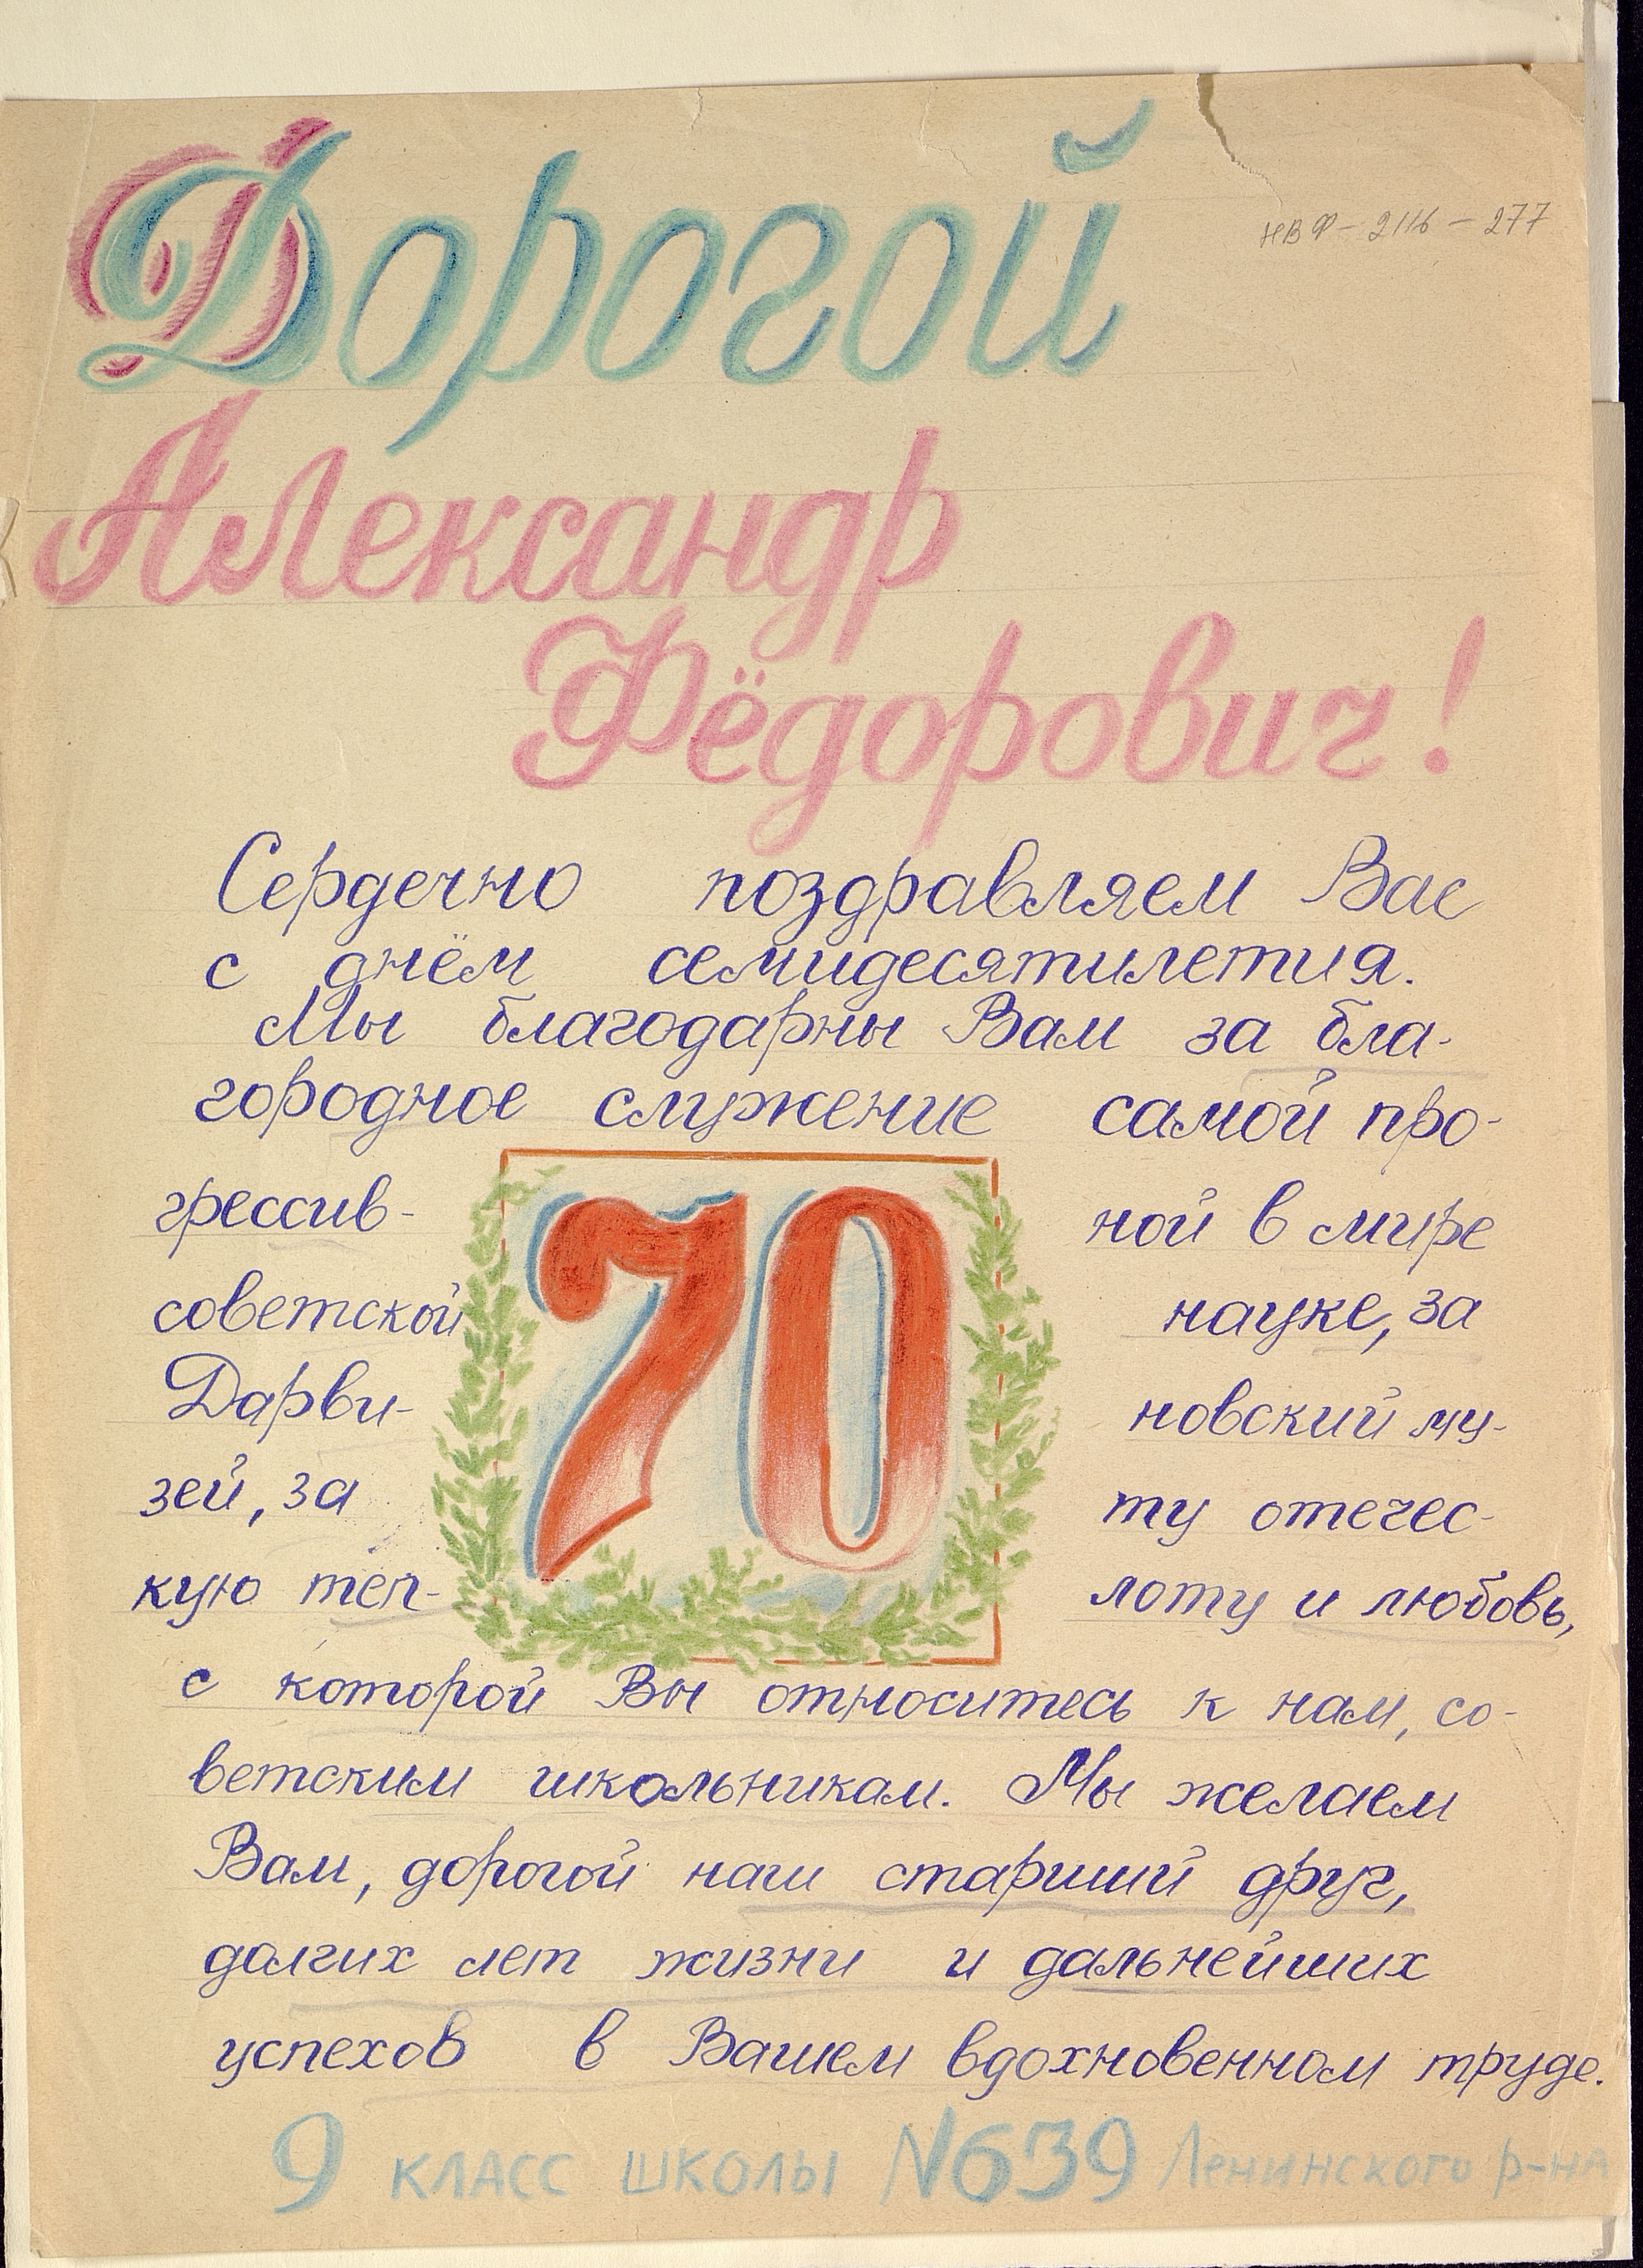 Дорогой
НВФ-2116-277
Александр
Фёдорович!
Сердечно поздравляем Вас
с днём семидесятилетия.
Мы благодарны Вам за бла-
городное служение самой про-
грессив- ной в мире
советской науке, за
Дарви- новский му-
зей, за ту отечес-
кую теп- лоту и любовь,
с которой Вы относитесь к нам, со-
ветским школьникам. Мы желаем
Вам, дорогой наш старший друг,
долгих лет жизни и дальнейших
успехов в Вашем вдохновенном труде.
70
9 КЛАСС ШКОЛЫ №639 Ленинского р-на